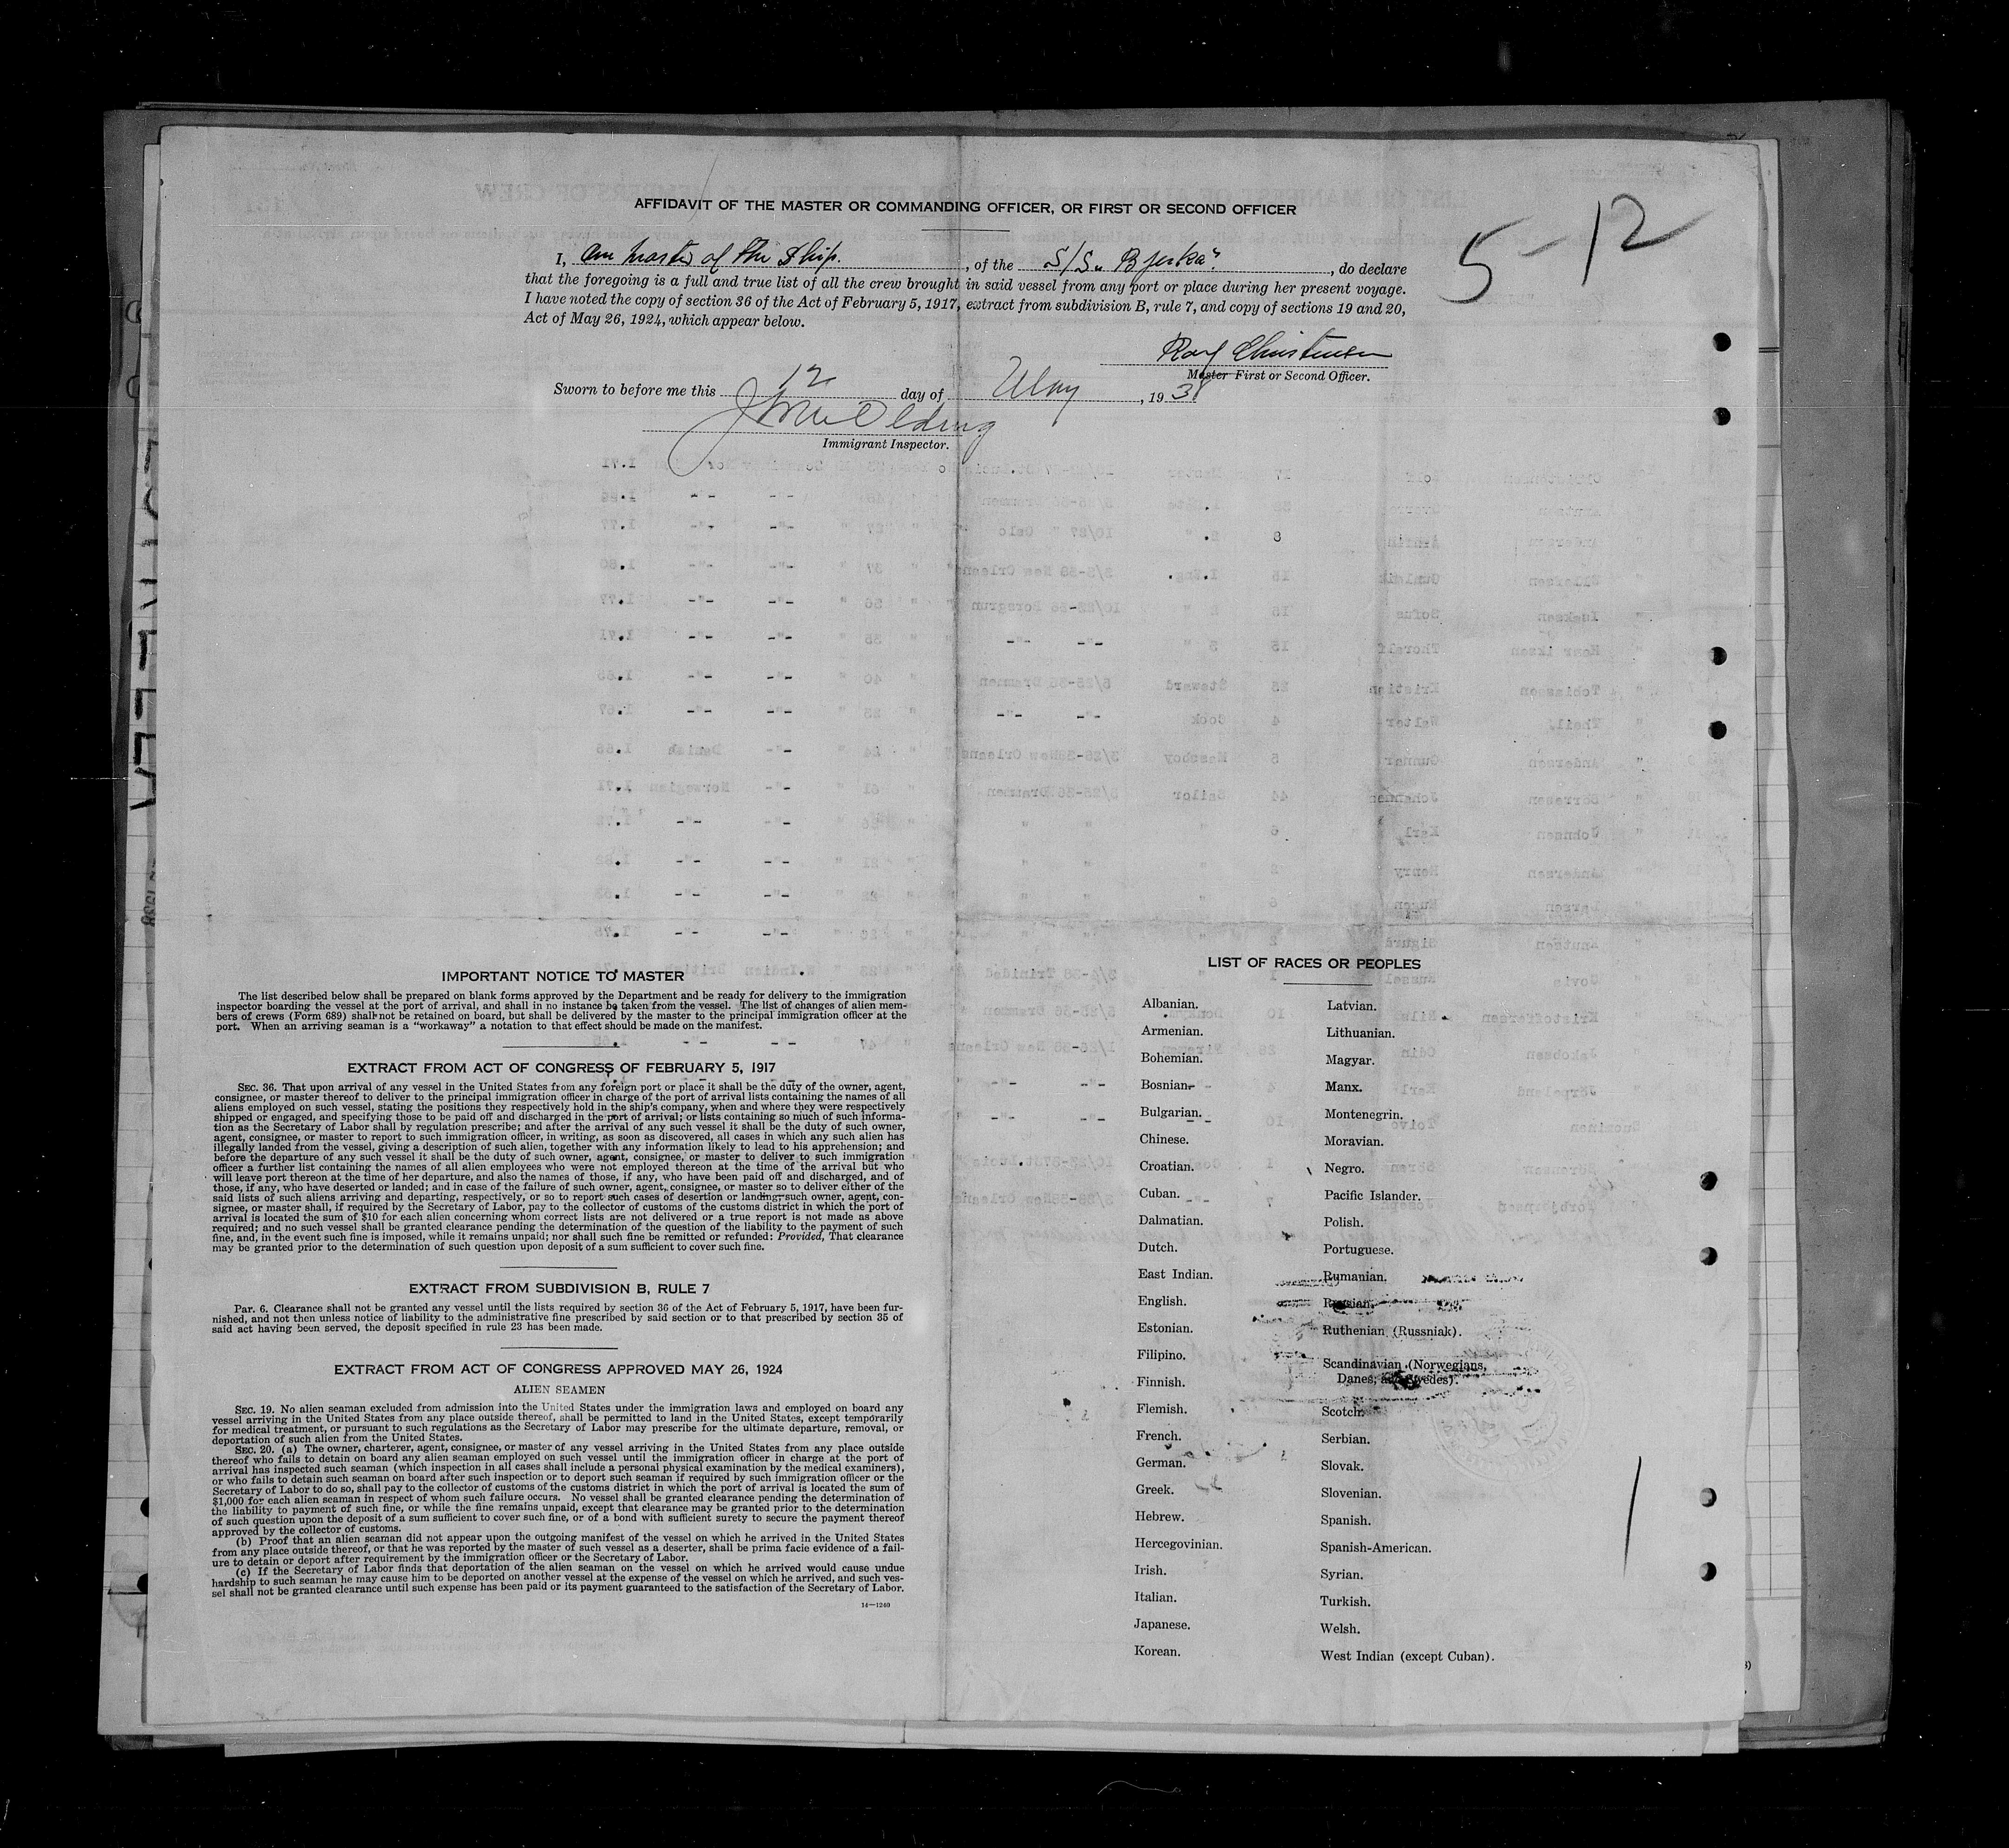 AFFIDAVIT OF THE MASTER OR COMMANDING OFFICER, OR FIRST OR SECOND OFFICER
5-12
I, am master of the Ship. , of the S/S. "Bjerka". , do declare
that the foregoing is a full and true list of all the crew brought in said vessel from any port or place during her present voyage.
I have noted the copy of section 36 of the Act of February 5, 1917, extract from subdivision B, rule 7, and copy of sections 19 and 20,
Act of May 26, 1924, which appear below.
Christensen
Master First or Second Officer.
Sworn to before me this 12 day of May , 1938
Immigrant Inspector.
IMPORTANT NOTICE TO MASTER
The list described below shall be prepared on blank forms approved by the Department and be ready for delivery to the immigration
inspector boarding the vessel at the port of arrival, and shall in no instance be taken from the vessel. The list of changes of alien mem-
bers of crews (Form 689) shall not be retained on board, but shall be delivered by the master to the principal immigration officer at the
port. When an arriving seaman is a "workaway" a notation to that effect should be made on the manifest.
EXTRACT FROM ACT OF CONGRESS OF FEBRUARY 5, 1917
SEC. 36. That upon arrival of any vessel in the United States from any foreign port or place it shall be the duty of the owner, agent,
consignee, or master thereof to deliver to the principal immigration officer in charge of the port of arrival lists containing the names of all
aliens employed on such vessel, stating the positions they respectively hold in the ship's company, when and where they were respectively
shipped or engaged, and specifying those to be paid off and discharged in the port of arrival; or lists containing so much of such informa-
tion as the Secretary of Labor shall by regulation prescribe; and after the arrival of any such vessel it shall be the duty of such owner,
agent, consignee, or master to report to such immigration officer, in writing, as soon as discovered, all cases in which any such alien has
illegally landed from the vessel, giving a description of such alien, together with any information likely to lead to his apprehension; and
before the departure of any such vessel it shall be the duty of such owner, agent, consignee, or master to deliver to such immigration
officer a further list containing the names of all alien employees who were not employed thereon at the time of the arrival but who
will leave port thereon at the time of her departure, and also the names of those, if any, who have been paid off and discharged, and of
those, if any, who have deserted or landed; and in case of the failure of such owner, agent, consignee, or master so to deliver either of the
said lists of such aliens arriving and departing, respectively, or so to report such cases of desertion or landing, such owner, agent, con-
signee, or master shall, if required by the Secretary of Labor, pay to the collector of customs of the customs district in which the port of
arrival is located the sum of $10 for each alien concerning whom correct lists are not delivered or a true report is not made as above
required; and no such vessel shall be granted clearance pending the determination of the question of the liability to the payment of such
fine, and, in the event such fine is imposed, while it remains unpaid; nor shall such fine be remitted or refunded: Provided, That clearance
may be granted prior to the determination of such question upon deposit of a sum sufficient to cover such fine.
EXTRACT FROM SUBDIVISION B, RULE 7
Par. 6. Clearance shall not be granted any vessel until the lists required by section 36 of the Act of February 5, 1917, have been fur-
nished, and not then unless notice of liability to the administrative fine prescribed by said section or to that prescribed by section 35 of
said act having been served, the deposit specified in rule 23 has been made.
EXTRACT FROM ACT OF CONGRESS APPROVED MAY 26, 1924
ALIEN SEAMEN
SEC. 19. No alien seaman excluded from admission into the United States under the immigration laws and employed on board any
vessel arriving in the United States from any place outside thereof, shall be permitted to land in the United States, except temporarily
for medical treatment, or pursuant to such regulations as the Secretary of Labor may prescribe for the ultimate departure, removal, or
deportation of such alien from the United States.
SEC. 20. (a) The owner, charterer, agent, consignee, or master of any vessel arriving in the United States from any place outside
thereof who fails to detain on board any alien seaman employed on such vessel until the immigration officer in charge at the port of
arrival has inspected such seaman (which inspection in all cases shall include a personal physical examination by the medical examiners),
or who fails to detain such seaman on board after such inspection or to deport such seaman if required by such immigration officer or the
Secretary of Labor to do so, shall pay to the collector of customs of the customs district in which the port of arrival is located the sum of
$1,000 for each alien seaman in respect of whom such failure occurs. No vessel shall be granted clearance pending the determination of
the liability to payment of such fine, or while the fine remains unpaid, except that clearance may be granted prior to the determination
of such question upon the deposit of a sum sufficient to cover such fine, or of a bond with sufficient surety to secure the payment thereof
approved by the collector of customs.
(b) Proof that an alien seaman did not appear upon the outgoing manifest of the vessel on which he arrived in the United States
from any place outside thereof, or that he was reported by the master of such vessel as a deserter, shall be prima facie evidence of a fail-
ure to detain or deport after requirement by the immigration officer or the Secretary of Labor.
(c) If the Secretary of Labor finds that deportation of the alien seaman on the vessel on which he arrived would cause undue
hardship to such seaman he may cause him to be deported on another vessel at the expense of the vessel on which he arrived, and such ves-
sel shall not be granted clearance until such expense has been paid or its payment guaranteed to the satisfaction of the Secretary of Labor.
14—1240
LIST OF RACES OR PEOPLES
Albanian.
Armenian.
Bohemian.
Bosnian.
Bulgarian.
Chinese.
Croatian.
Cuban.
Dalmatian.
Dutch.
East Indian.
English.
Estonian.
Filipino.
Finnish.
Flemish.
French.
German.
Greek.
Hebrew.
Hercegovinian.
Irish.
Italian.
Japanese.
Korean.
Latvian.
Lithuanian.
Magyar.
Manx.
Montenegrin.
Moravian.
Negro.
Pacific Islander.
Polish.
Portuguese.
Rumanian.
Russian.
Ruthenian (Russniak).
Scandinavian (Norwegians,
Danes, and Swedes).
Scotch.
Serbian.
Slovak.
Slovenian.
Spanish.
Spanish-American.
Syrian.
Turkish.
Welsh.
West Indian (except Cuban).